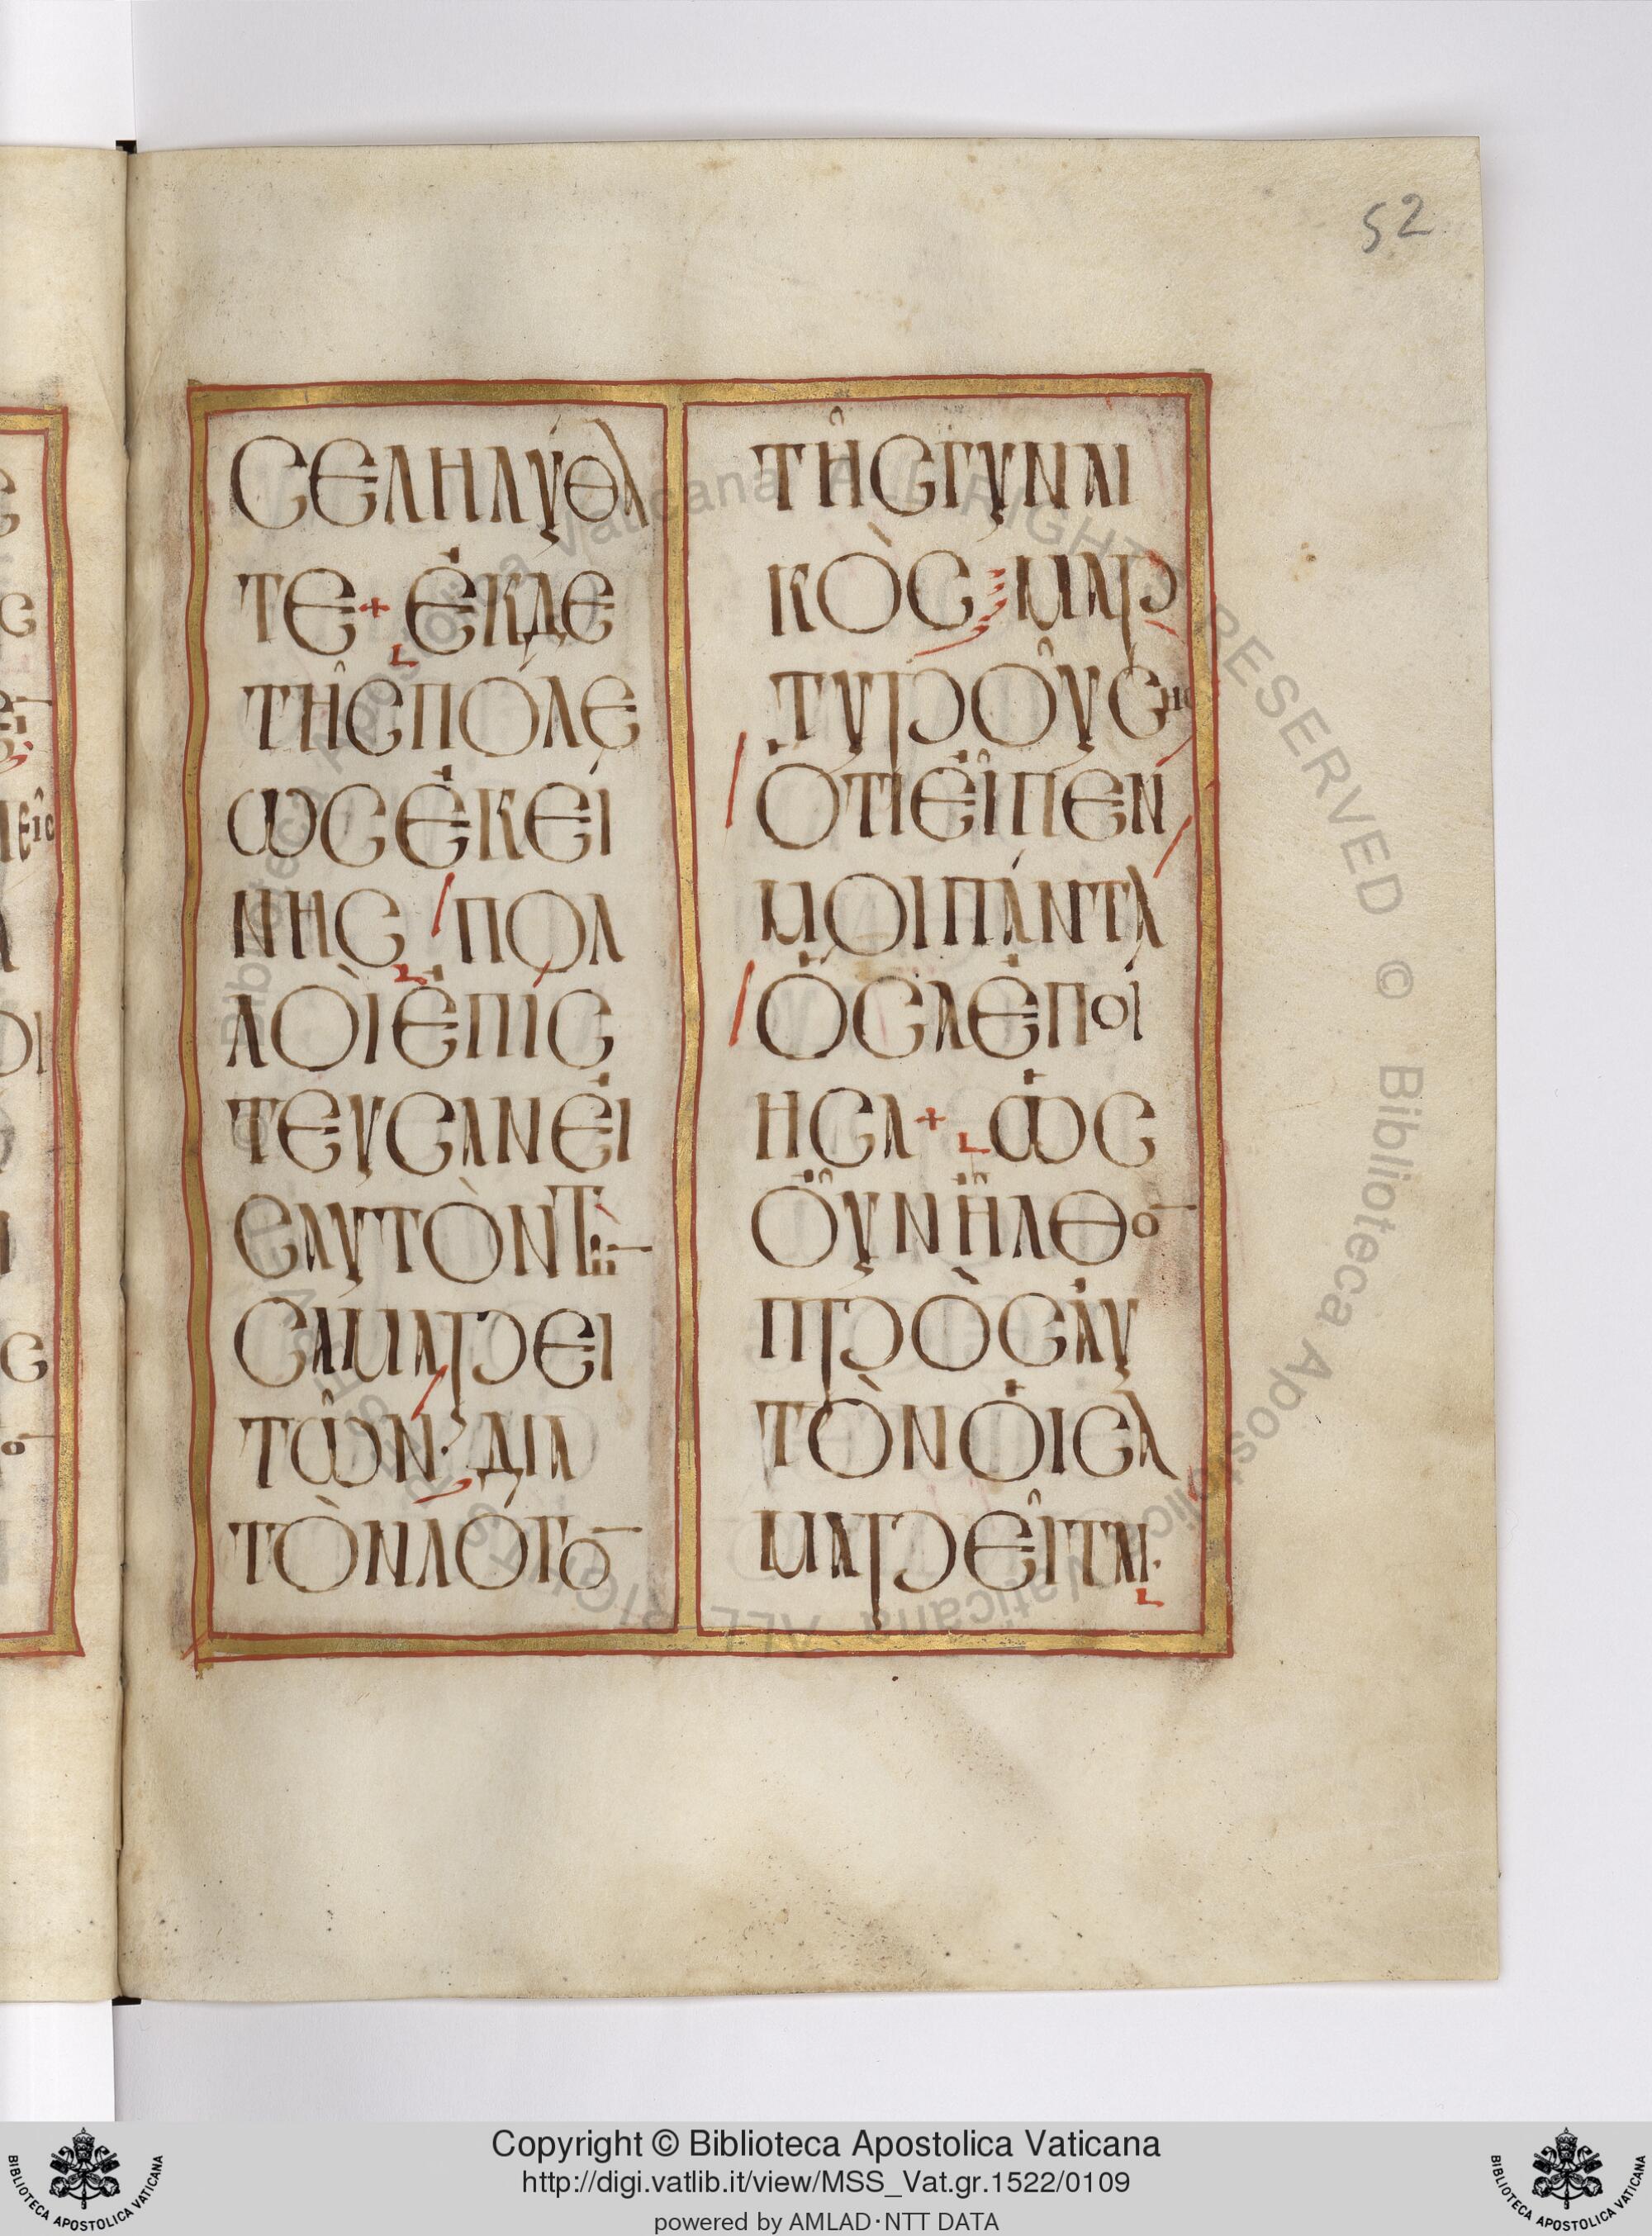 52
ϹΕΛΗΛΥΘΑ
ΤΕ + ἘΚΔΕ
ΤΗ͂ϹΠΌΛΕ
ΩϹἘΚΕΊ
ΝΗϹ ΠΟΛ
ΛΟῚἘΠΊϹ
ΤΕΥϹΑΝΕἸ
ϹΑΥΤῸΝΤῶ̅
ϹΑΜΑΡΕΙ
ΤΩ͂Ν· ΔΙΑ
ΤῸΝΛΌΓΟ̅
ΤΗ͂ϹΓΥΝΑΙ
ΚῸϹ ΜΑΡ
ΤΥΡΟΎϹΗϹ
ὍΤΙΕἾΠΕΝ
ΜΟΙΠΆΝΤΑ
ὍϹΑἘΠΟΊ
ΗϹΑ + ὩϹ
ΟὖΝἮΛΘΟ̅
ΠΡῸϹΑΥ̓
ΤῸΝὉΙϹΑ
ΜΑΡΕῖΤΑΙ·
Copyright © Biblioteca Apostolica Vaticana
http://digi.vatlib.it/view/MSS_Vat.gr.1522/0109
powered by AMLAD·NTT DATA
BIBLIOTECA APOSTOLICA VATICANA
BIBLIOTECA APOSTOLICA VATICANA
Biblioteca Apostolica Vaticana ALL RIGHTS RESERVED © Biblioteca Apostolica Vaticana ALL RIGHTS RESERVED ©